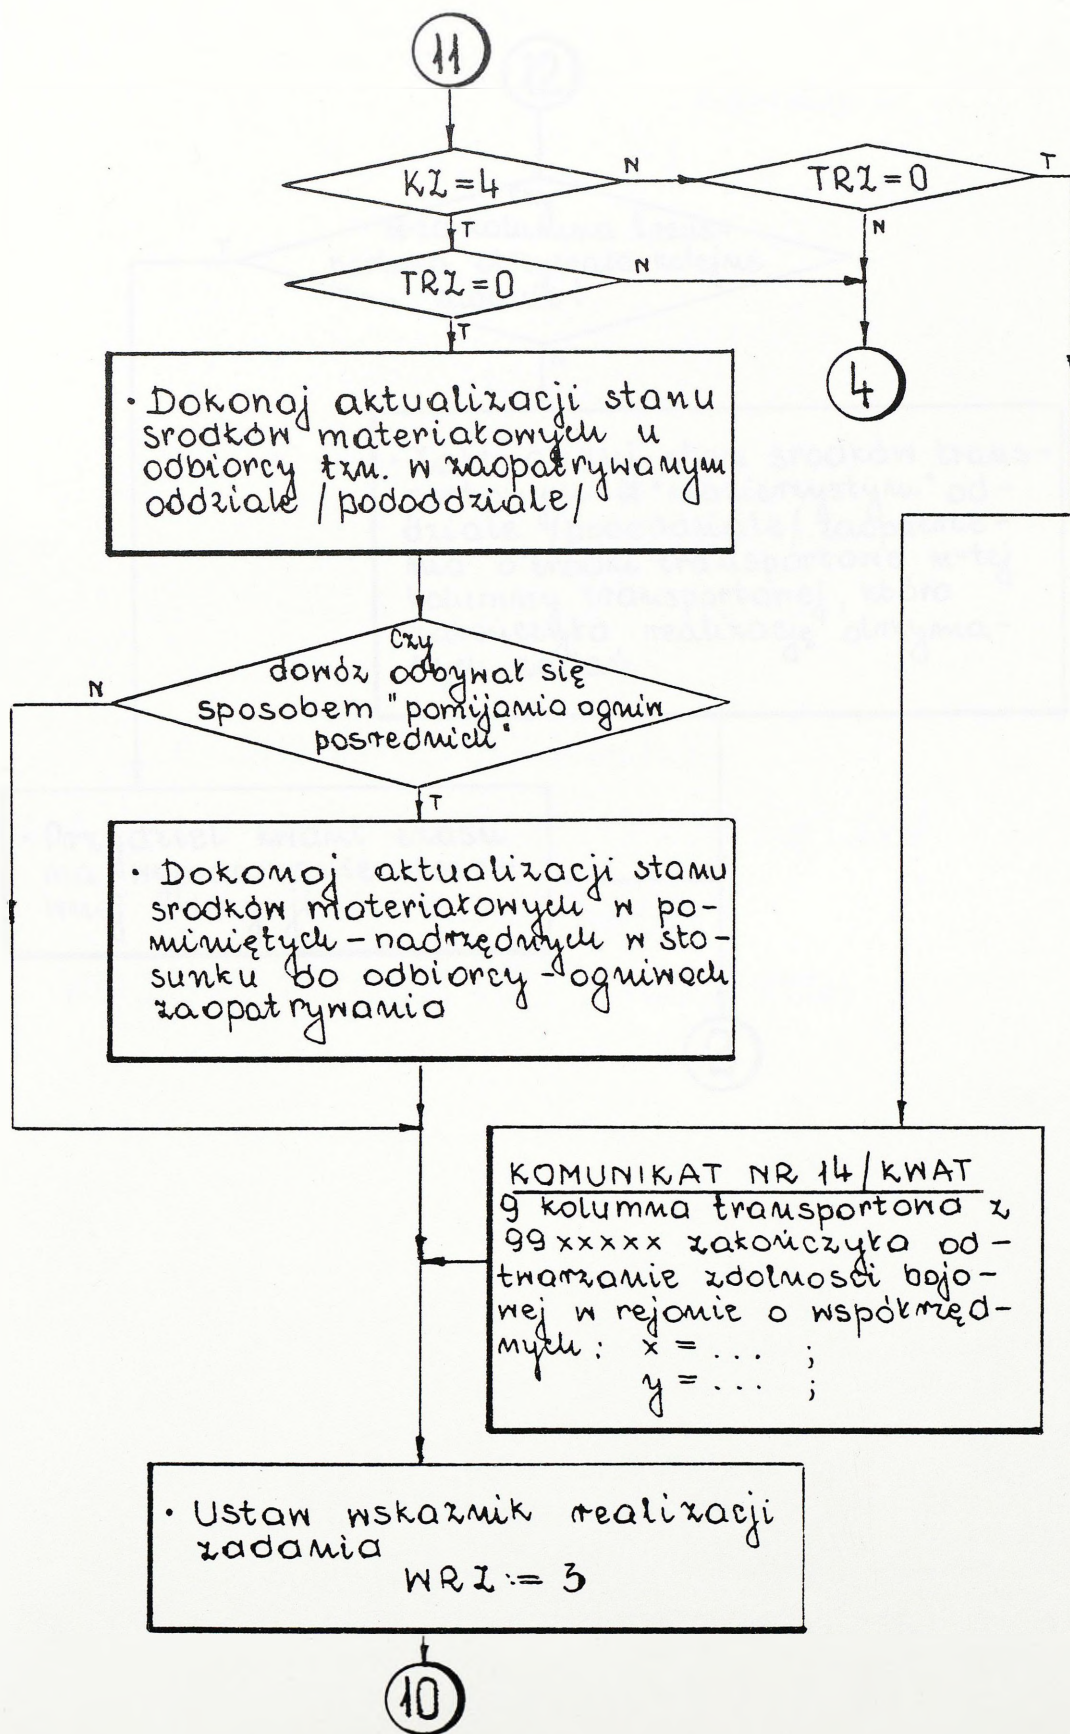 11
KZ=4
N
TRZ=0
T
T
N
TRZ=0
N
T
4
• Dokonaj aktualizacji stanu
srodków materiałowych u
odbiorcy tzn. w zaopatrywanym
oddziale /pododdziale/
Czy
dowóz odbywał się
sposobem "pomijania ogniw
posrednich"
N
T
• Dokonaj aktualizacji stanu
srodków materiałowych w po-
miniętych - nadrzędnych w sto-
sunku do odbiorcy - ogniwach
zaopatrywania
KOMUNIKAT NR 14/KWAT
9 kolumna transportowa z
99xxxxx zakończyła od-
twarzanie zdolności bojo-
wej w rejonie o współrzęd-
nych: x = ... ;
y = ... ;
• Ustaw wskaznik realizacji
zadania
WRZ := 3
10